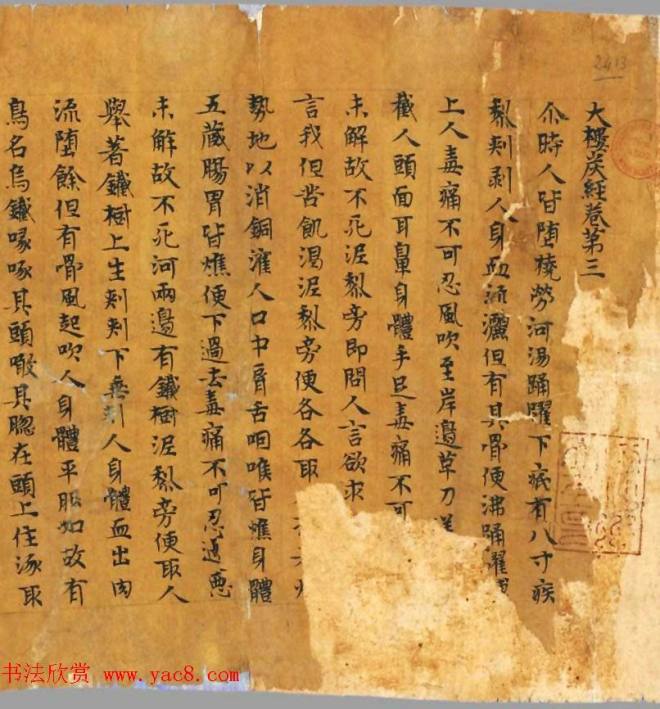 2413
大樓炭經卷第三
尒時人皆墮撓勞河湯踊躍下疧有八寸疾
䔧刾剥人身血流灑但有其骨便沸踊躍
上人毒痛不可忍風吹至岸邊草刀
截人頭面耳鼻身體手足毒痛不可
未解故不死泥䔧旁即問人言欲求
言我但苦飢渴泥䔧旁便各各取
熱地以消銅灌人口中脣舌咽喉皆燋身體
五藏腸胃皆燋便下過去毒痛不可忍過惡
未解故不死河兩邊有鐵樹泥䔧旁便取人
舉著鐵樹上生刾刾下垂刾人身體血出肉
流墮餘但有骨風起吹人身體平服如故有
鳥名烏鐵喙啄其頭噉其𦛁在頭上住啄取
书法欣赏 www.yac8.com